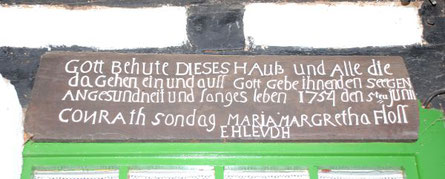 Gott Behute DIESES HAUß und Alle die
da Gehen ein und auss Gott Gebe ihnen den seeGEN
ANGesundheit und langes leben 1754 den 8ten
CONRAth sondag MARIA MARGRetha Floss
EHLEVDH